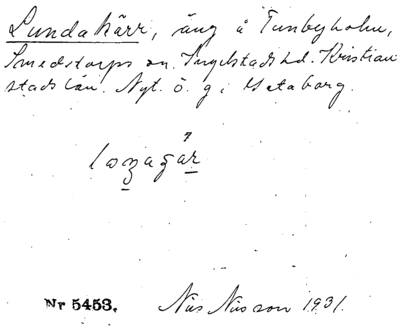 Lundakärr, äng å Tunbyholm,
Smedstorps sn. Ingelstads hd. Kristian
stads län. Nyt. ö. g. i Getaborg.
Nr 5453. Nils Nilsson 1931.